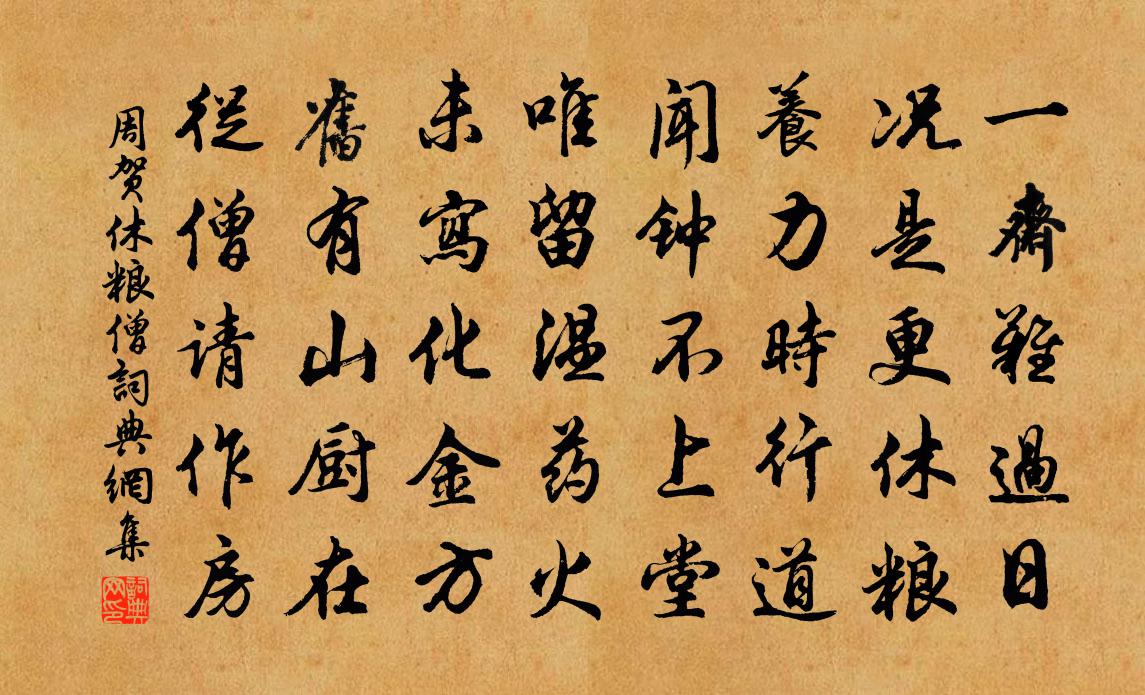 一齋難過日
况是更休粮
養力時行道
闻钟不上堂
唯留温药火
未寫化金方
舊有山厨在
從僧请作房
周贺休粮僧詞典網集
詞典网印